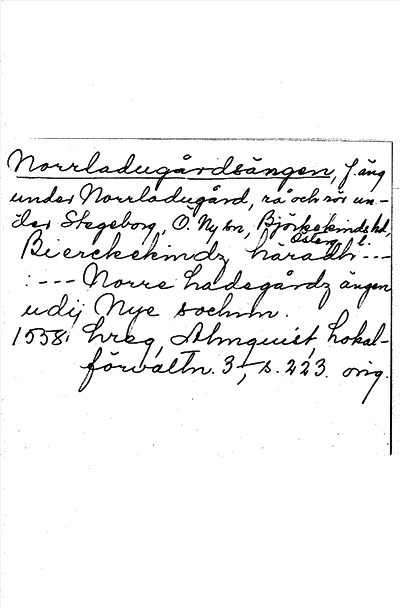 Norrladugårdsängen, f. äng
under Norrladugård, rå och rör un-
der Stegeborg, Ö. Ny sn, Björkekinds hd,
Österg. l.
Bierckekindz häradh ---
: --- Norre ladegårdz ängen
udij Nye sochnn.
1558, hreg, Almquist, Lokal-
förvaltn. 3, s. 223. orig.